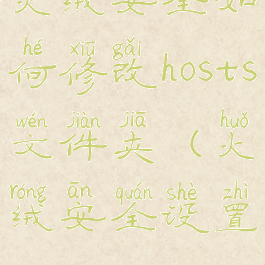 火绒安全如
hé xiū gǎi
何修改hosts
wén jiàn jiā huǒ
文件夹(火
róng ān quán shè zhì
绒安全设置